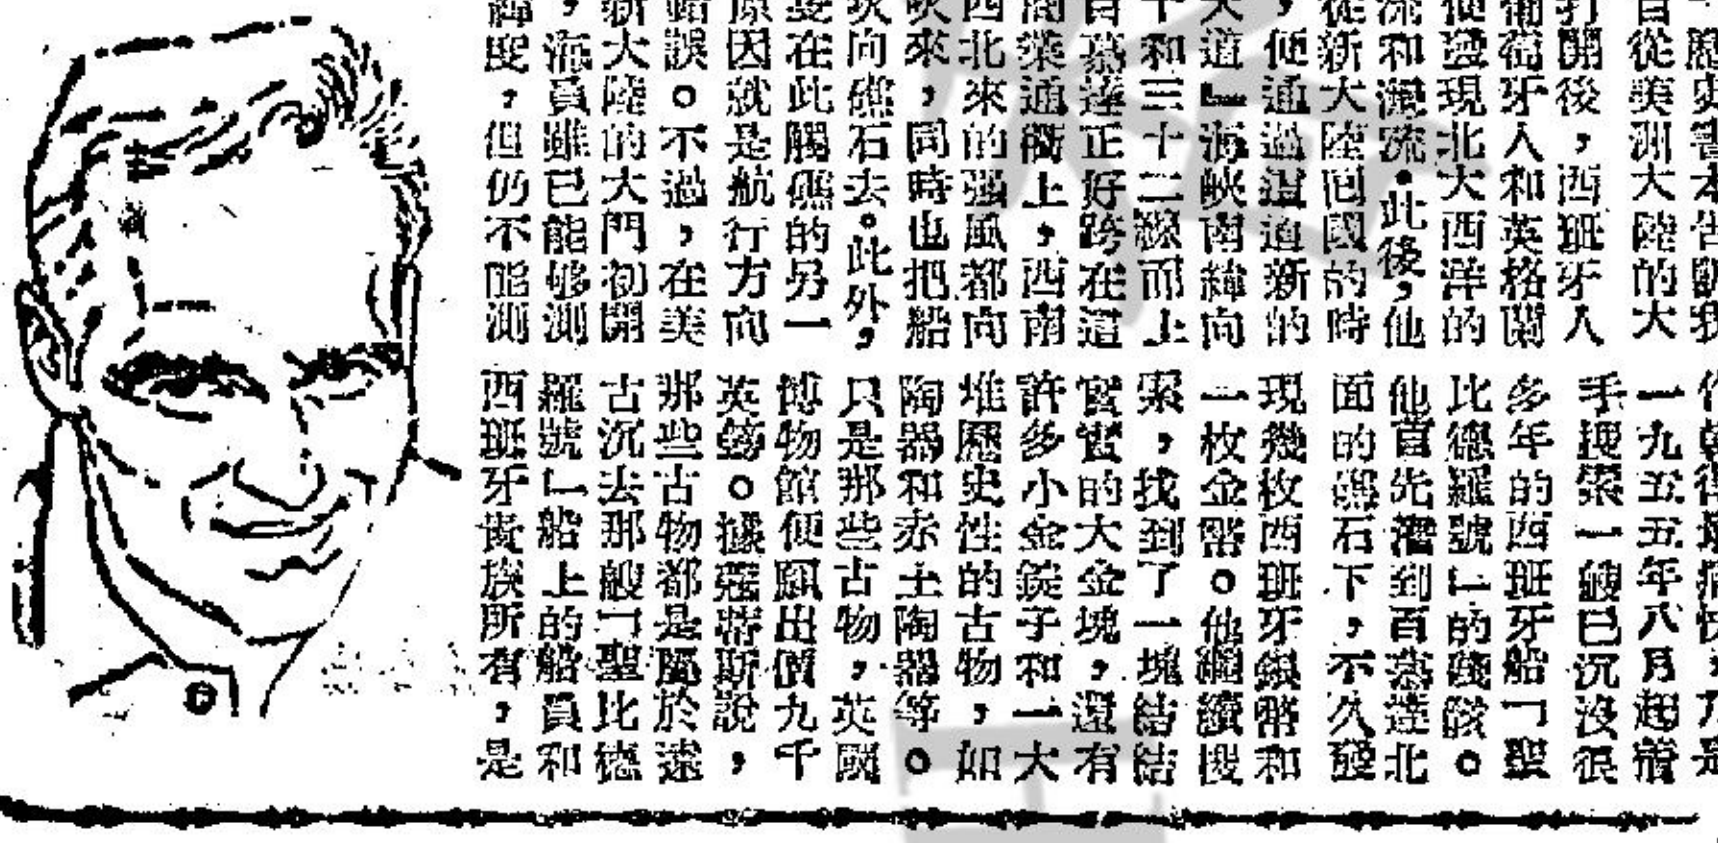 史書本告訴我
自從美洲大陸的大
打開後，西班牙人
葡萄牙人和英格蘭
便發現北大西洋的
流和灣流．此後，他
從新大陸囘國的時
，便通過這道新的
大道」海峽南緯向
十和三十二線而上
百慕達正好跨在這
業通衢上，西南
西北來的强風都向
吹來，同時也把船
吹向礁石去。此外，
在此觸礁的另一
原因就是航行方向
錯誤。不過，在美
新大陸的大門初開
，海員雖已能够測
緯度，但仍不能測
得最痛快，乃是
一九五五年八月起着
手搜索一艘已沉沒很
多年的西班牙船「聖
比德羅號」的殘骸。
他首先潛到百慕達北
面的礁石下，不久發
現幾枚西班牙銀幣和
一枚金幣。他繼續搜
索，找到了一塊結結
實實的大金塊，還有
許多小金錠子和一大
堆歷史性的古物，如
陶器和赤土陶器等。
只是那些古物，英國
博物館便願出價九千
英鎊。據蔣斯說，
那些古物都是屬於遠
古沉去那艘「聖比德
羅號」船上的船員和
西班牙貴族所有，是